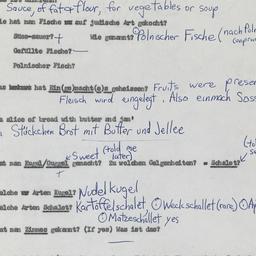 Sauce, of fat+flour, for vegetables or soup
ie hat man Fische auf jüdische Art gekocht?
Süss-sauer? + Wie genannt? Polnischer Fische (nach Poln
Gefüllte Fische?
Polnischer Fisch?
hat Ein(ge)macht(e)s geheissen? Fruits were preser
Fleisch wird eingelegt. Also einmach Sos
a slice of bread with butter and jam'
Stückchen Brot mit Butter und Jellee
Sweet (told me later)
at man Kugel/ gemacht? Zu welchen Gelegenheiten? = Schalet?
elche Arten Kugel? Nudelkugel
elche Arten Schalet? Kartoffelschalet Weckschallet (rare)
Matzeschallet yes
at man Zimmes gekannt? (If yes) Was ist das?